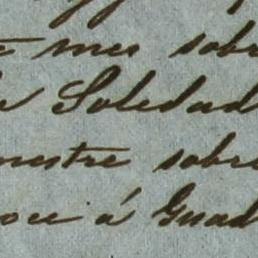 mes sobre
Soledad
mestre sobre
á Guad